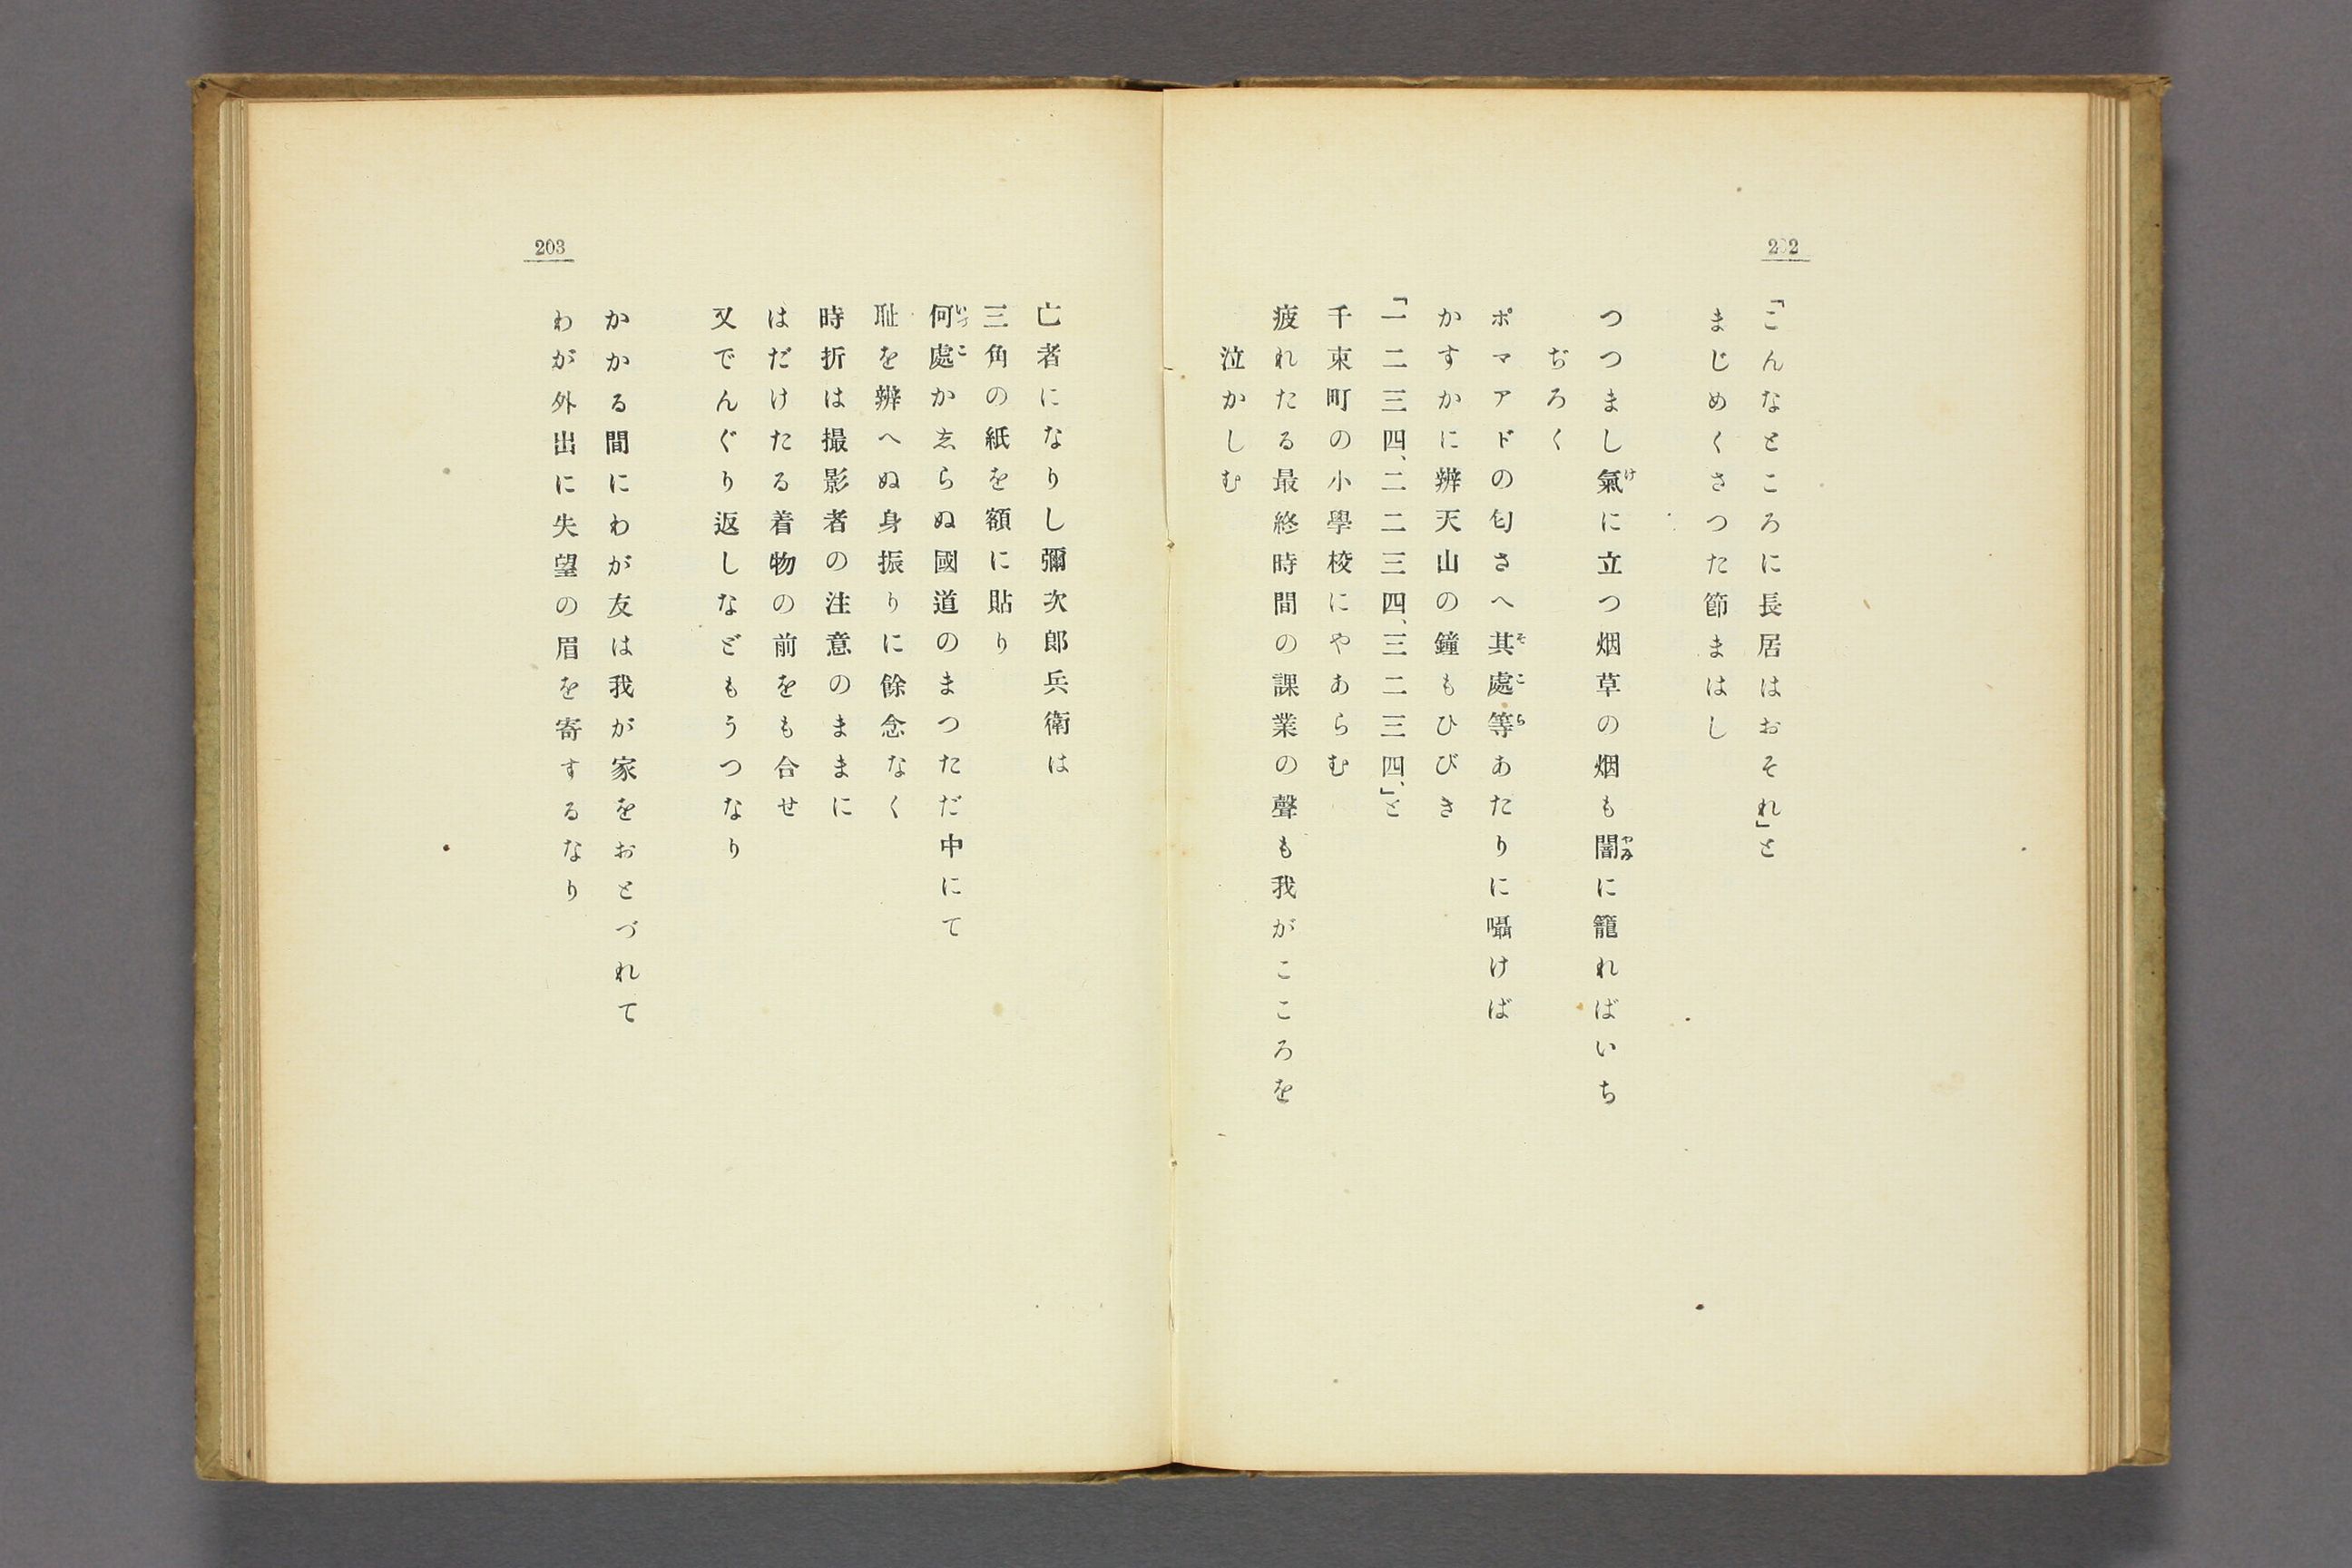 202
「こんなところに長居はおそれ」と
まじめくさつた節まはし
つつまし氣に立つ烟草の烟も闇に籠ればいち
ぢろく
ポマアドの匂さへ其處等あたりに囁けば
かすかに辨天山の鐘もひびき
「一二三四、二二三四、三二三四、」と
千束町の小學校にやあらむ
疲れたる最終時間の課業の聲も我がこころを
泣かしむ
203
亡者になりし彌次郎兵衛は
三角の紙を額に貼り
何處かゑらぬ國道のまつただ中にて
耻を辨へぬ身振りに餘念なく
時折は撮影者の注意のままに
はだけたる着物の前をも合せ
又でんぐり返しなどもうつなり
かかる間にわが友は我が家をおとづれて
わが外出に失望の眉を寄するなり